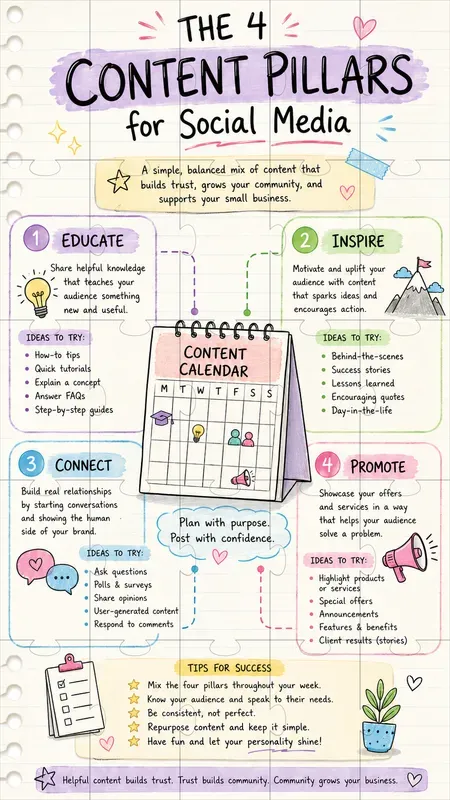 THE 4
CONTENT PILLARS
for Social Media
A simple, balanced mix of content that
builds trust, grows your community, and
supports your small business.
1 EDUCATE
Share helpful knowledge
that teaches your
audience something
new and useful.
IDEAS TO TRY:
• How-to tips
• Quick tutorials
• Explain a concept
• Answer FAQs
• Step-by-step guides
2 INSPIRE
Motivate and uplift your
audience with content
that sparks ideas and
encourages action.
IDEAS TO TRY:
• Behind-the-scenes
• Success stories
• Lessons learned
• Encouraging quotes
• Day-in-the-life
CONTENT
CALENDAR
M T W T F S S
3 CONNECT
Build real relationships
by starting conversations
and showing the human
side of your brand.
IDEAS TO TRY:
• Ask questions
• Polls & surveys
• Share opinions
• User-generated content
• Respond to comments
Plan with purpose.
Post with confidence.
4 PROMOTE
Showcase your offers
and services in a way
that helps your audience
solve a problem.
IDEAS TO TRY:
• Highlight products
or services
• Special offers
• Announcements
• Features & benefits
• Client results (stories)
TIPS FOR SUCCESS
Mix the four pillars throughout your week.
Know your audience and speak to their needs.
Be consistent, not perfect.
Repurpose content and keep it simple.
Have fun and let your personality shine!
Helpful content builds trust. Trust builds community. Community grows your business.